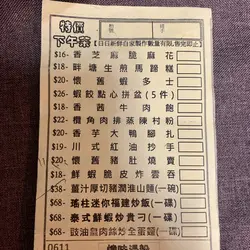 特價
下午茶
【日日新鮮自家製作數量有限,售完即止】
$16- 香芝麻脆麻花
$18- 胖塘生煎馬蹄糕
$20- 懷舊蝦多士
$28- 蝦餃點心拼盆(5件)
$18- 香茜牛肉飽
$22- 欖角肉排蒸陳村粉
$20- 香芋大鴨腳扎
$19- 川式紅油抄手
$20- 懷舊豬肚燒賣
$20- 鮮蝦炸雲吞
$38- 薑汁厚切豬潤淮山麵(一碗)
$68- 瑤柱迷你福建炒飯(一碟)
$68- 泰式鮮蝦炒貴刁(一碟)
$68- 豉油皇肉絲炒全蛋麵(一碟)
0611